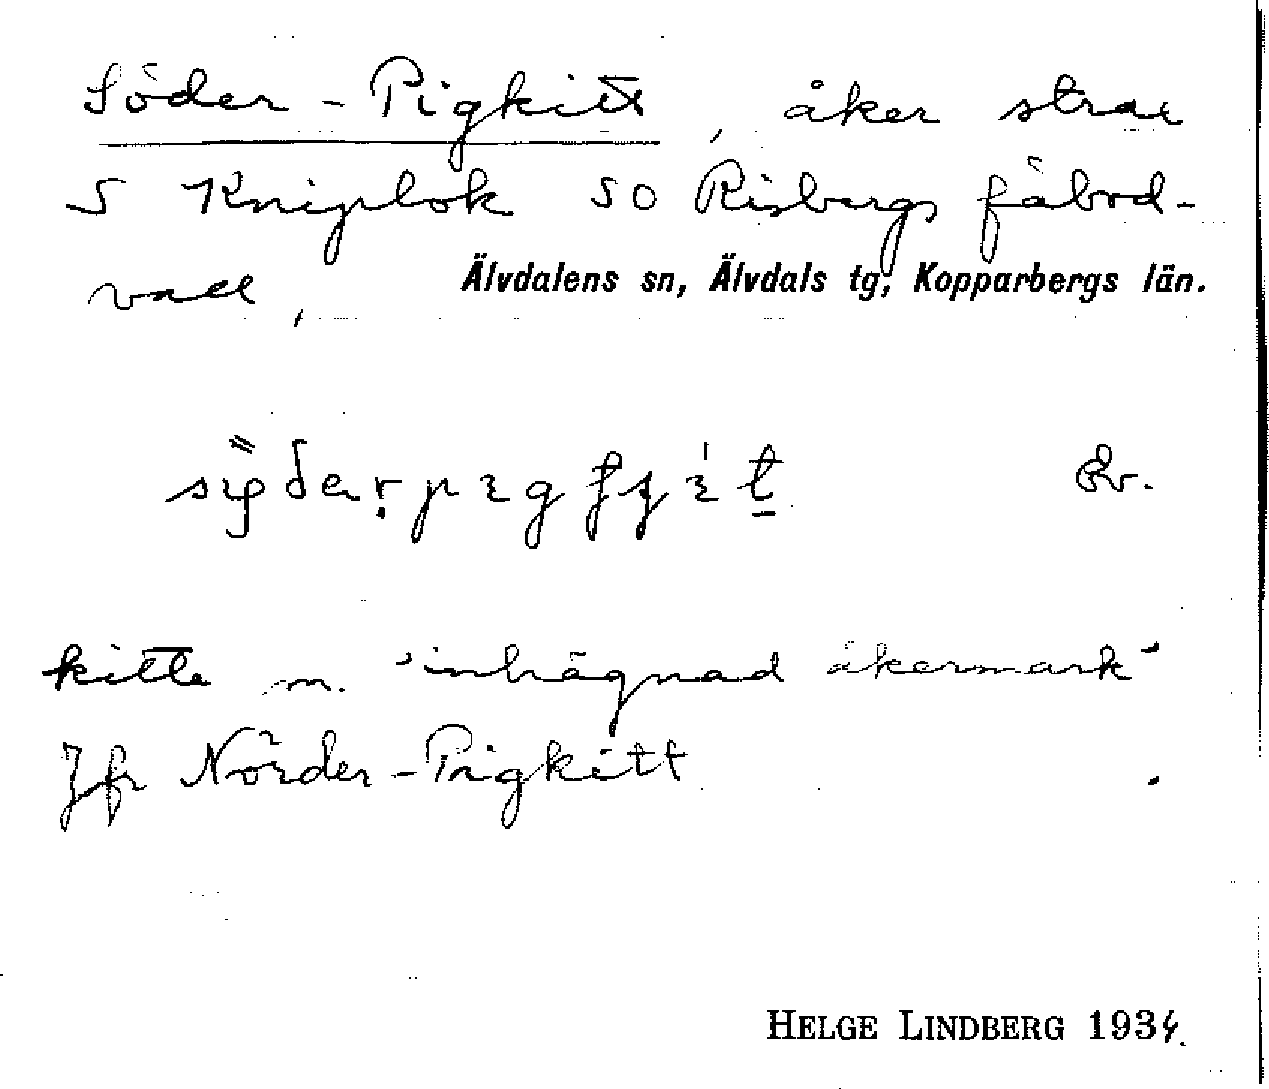 Söder-Pigkitt, åker strax
S Kniplok SO Risbergs fäbod-
vall,
Älvdalens sn, Älvdals tg, Kopparbergs län.
Öv.
kitte m. 'inhägnad åkermark'
Jfr Nörder-Pigkitt
HELGE LINDBERG 1934.